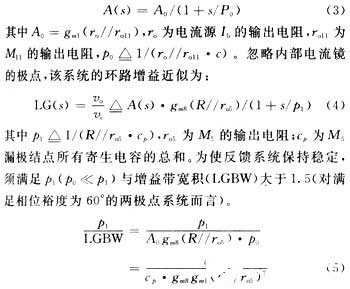 A(s) = A₀/(1 + s/P₀) (3)
其中 A₀ = gm1(r₀//r₀11), r₀ 为电流源 Ib 的输出电阻, r₀11 为
M11 的输出电阻, p₀ ≜ 1/(r₀//r₀11 · c)。忽略内部电流镜
的极点,该系统的环路增益近似为:
LG(s) = v₀/vᵢ ≜ A(s) · gm8(R//r₀5)/(1 + s/p₁) (4)
其中 p₁ ≜ 1/(R//r₀5 · cp), r₀5 为 M5 的输出电阻;cp 为 M5
漏极结点所有寄生电容的总和。为使反馈系统保持稳定,
须满足 p₁(p₀ ≪ p₁) 与增益带宽积(LGBW)大于 1.5(对满
足相位裕度为 60°的两极点系统而言)。
p₁/LGBW = p₁/(A₀gm8(R//r₀5) · p₀)
= c/(cp · gm8gm1( r₀5)² (5)